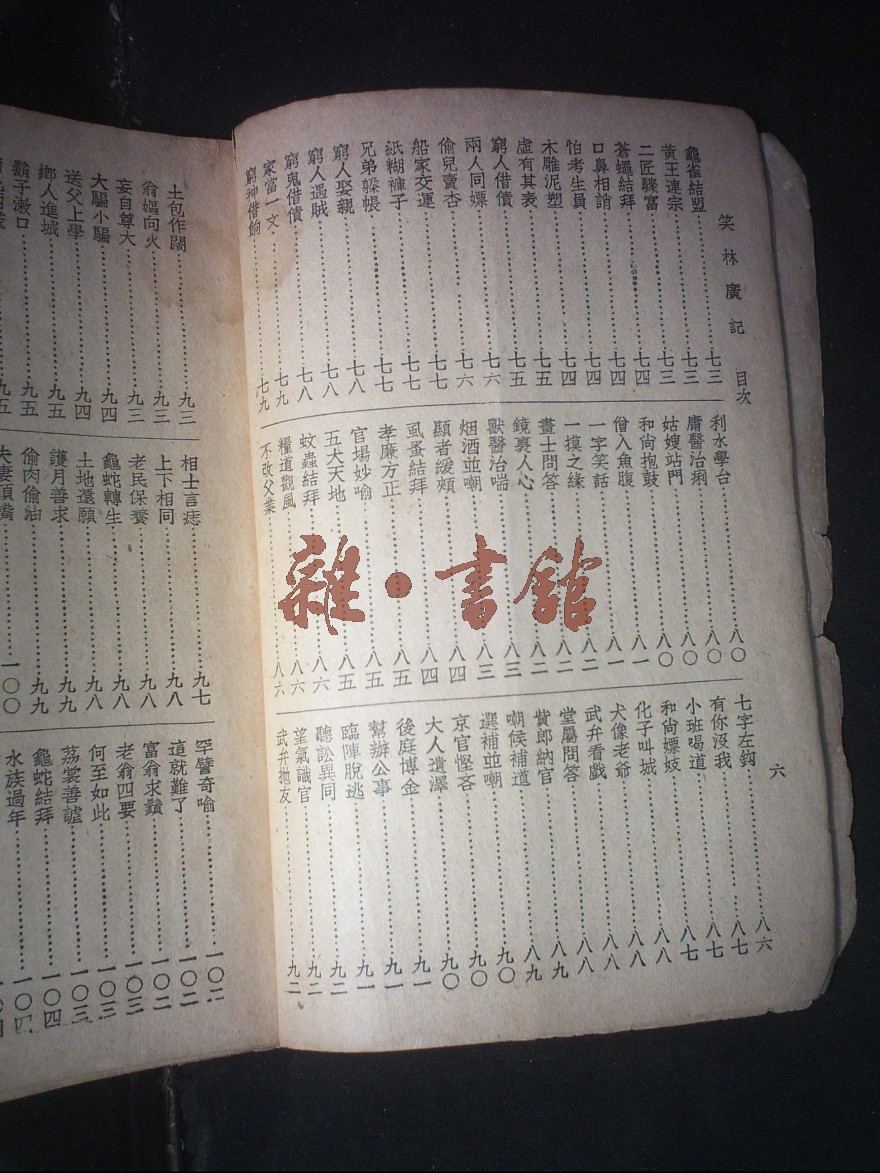 笑林廣記 目次 六
龜雀結盟……七三
黃王連宗……七三
二匠驟富……七三
蒼蠅結拜……七四
口鼻相誚……七四
怕考生員……七四
木雕泥塑……七四
虛有其表……七五
窮人借債……七五
兩人同嫖……七六
偷兒賣杏……七六
船家交運……七七
紙糊褲子……七七
兄弟躲帳……七七
窮人娶親……七八
窮人遇賊……七八
窮鬼借債……七八
家當一文……七九
窮神借餉……七九
利水學台……八〇
庸醫治痢……八〇
姑嫂站門……八〇
和尚抱鼓……八一
僧入魚腹……八一
一字笑話……八二
一摸之緣……八二
畫士問答……八二
鏡裏人心……八三
獸醫治喘……八三
烟酒並嘲……八四
顯者緩頰……八四
虱蚤結拜……八四
孝廉方正……八五
官場妙喻……八五
五大天地……八五
蚊蟲結拜……八六
糧道觀風……八六
不改父業……八六
七字左鈎……八六
有你没我……八七
小班喝道……八七
和尚嫖妓……八七
化子叫城……八八
犬像老爺……八八
武弁看戲……八八
堂屬問答……八八
貲郎納官……八九
嘲候補道……八九
選補並嘲……九〇
京官慳吝……九〇
大人遺澤……九〇
後庭博金……九一
幫辦公事……九一
臨陣脫逃……九一
聽訟異同……九二
望氣識官……九二
武弁拋友……九二
土包作闊……九三
翁嫗向火……九三
妄自尊大……九三
大騙小騙……九四
送父上學……九四
鄉人進城……九五
鬍子漱口……九五
九五
相士言痣……九七
上下相同……九八
老民保養……九八
龜蛇轉生……九八
土地還願……九八
護月善求……九九
偷肉偷油……九九
夫妻頂嘴……一〇〇
罕譬奇喻……一〇二
這就難了……一〇二
富翁求鬚……一〇二
老翁四要……一〇三
何至如此……一〇三
荔裳善謔……一〇四
龜蛇結拜……一〇四
水族過年……一〇四
雜·書館